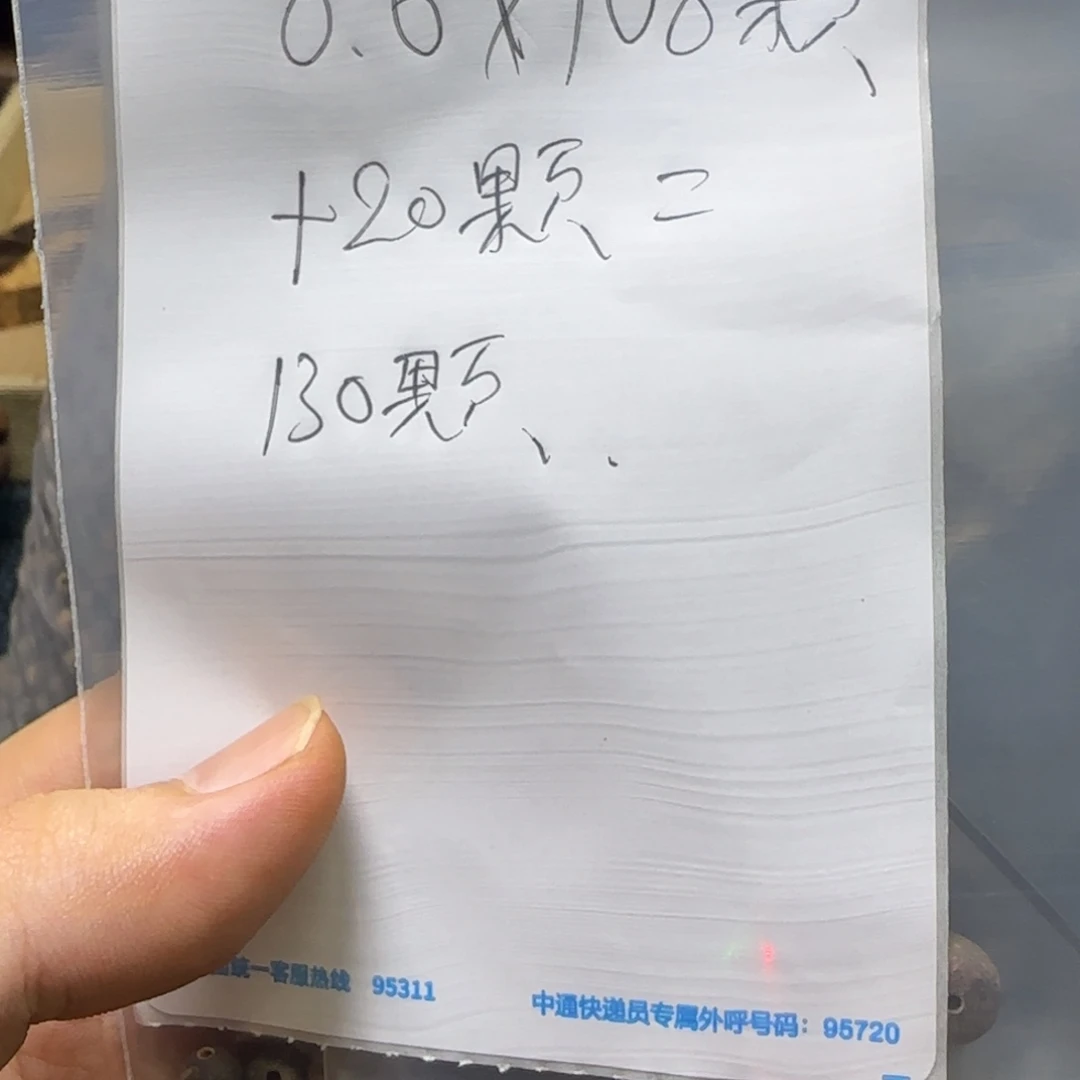 0.6x108颗
+20颗=
130颗、.
统一客服热线 95311
中通快递员专属外呼号码：95720